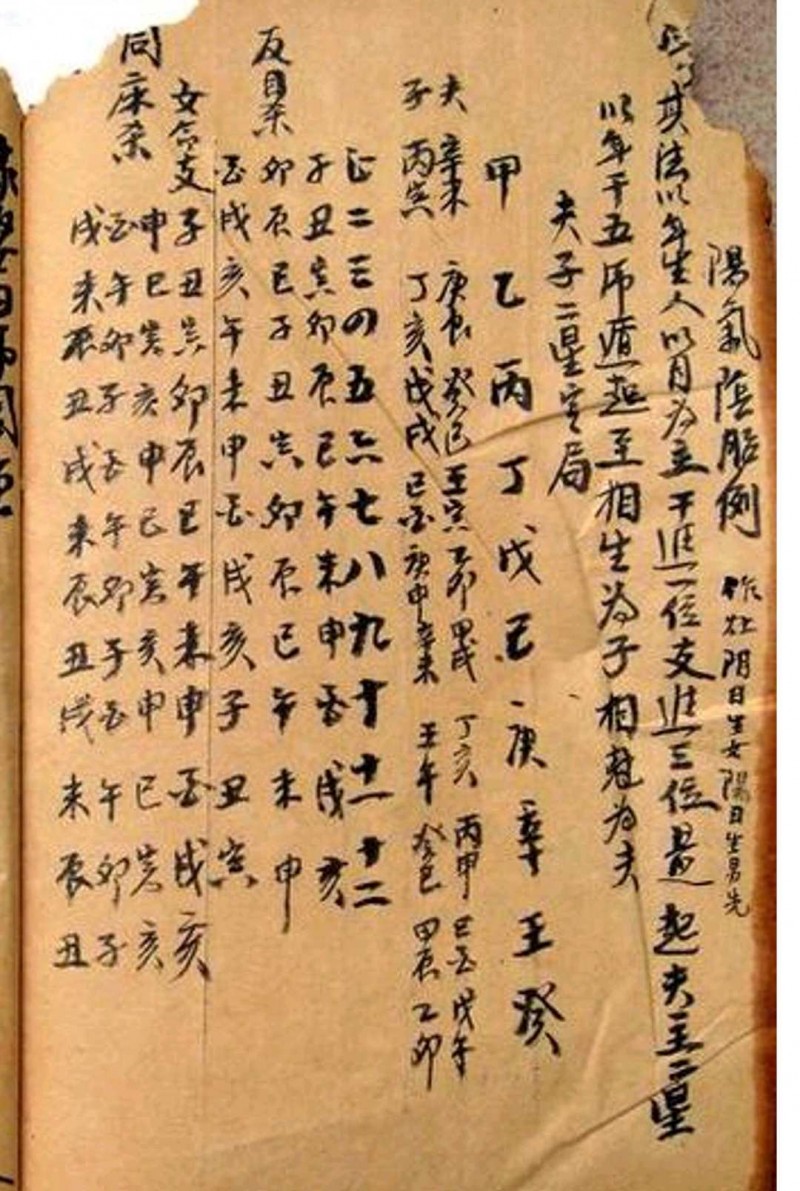 陽氣陰胎例 阴日生女陽日生男先
其法以年生人以月為主干進一位支進三位是起夫主二星
以年干五虎遁起至相生為子相尅為夫
夫子二星定局
甲 乙 丙 丁 戊 己 庚 辛 壬 癸
夫 辛未 庚辰 癸巳 壬寅 乙卯 甲戌 丁亥 丙申 己酉 戊午
子 丙寅 丁亥 戊戌 己酉 庚申 辛未 壬午 癸巳 甲辰 乙卯
正二三四五六七八九十十一十二
子丑寅卯辰巳午未申酉戌亥
反目杀 卯辰巳子丑寅卯辰巳午未申
酉戌亥午未申酉戌亥子丑寅
女命支子丑寅卯辰巳午未申酉戌亥
申巳寅亥申巳寅亥申巳寅亥
同床杀 酉午卯子酉午卯子酉午卯子
戌未辰丑戌未辰丑戌未辰丑